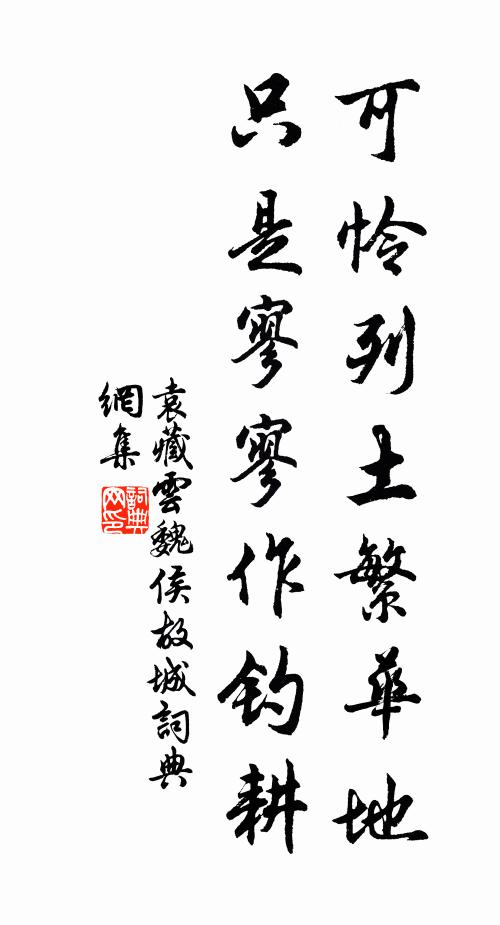 可怜列土繁華地
只是寥寥作钓耕
袁藏雲魏侯故城詞典
網集
詞典
网印